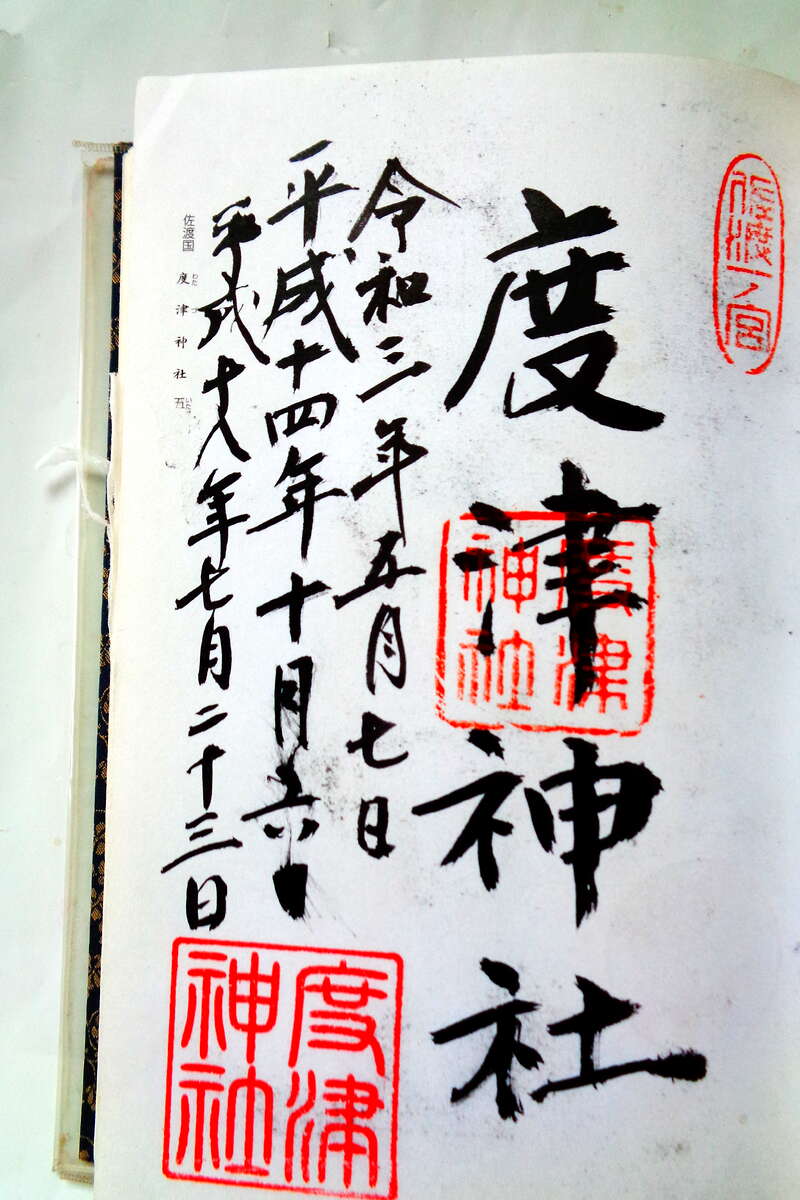 佐渡一ノ宮
度津神社
度津
神社
令和三年五月七日
平成十四年十月六日
平成十八年七月二十三日
度津
神社
佐渡国 度津神社 五
わた つ